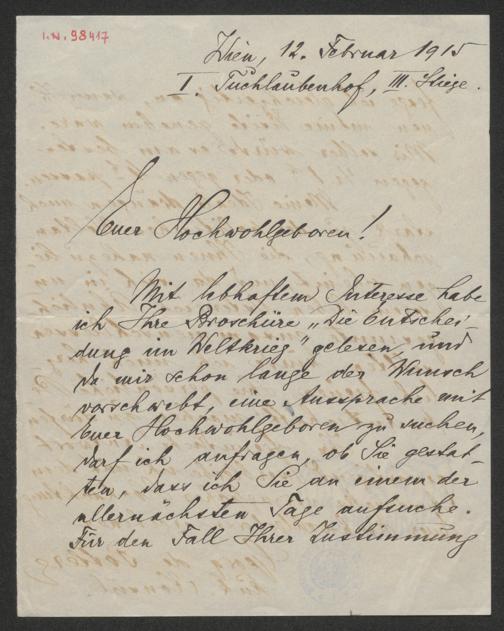 I.N. 98417
Wien, 12. Februar 1915
I. Tuchlaubenhof, III. Stiege.
Euer Hochwohlgeboren!
Mit lebhaftem Interesse habe
ich Ihre Broschüre „Die Entschei-
dung im Weltkrieg" gelesen, und
da mir schon lange der Wunsch
vorschwebt, eine Aussprache mit
Euer Hochwohlgeboren zu suchen,
darf ich anfragen, ob Sie gestat-
ten, dass ich Sie an einem der
allernächsten Tage aufsuche.
Für den Fall Ihrer Zustimmung